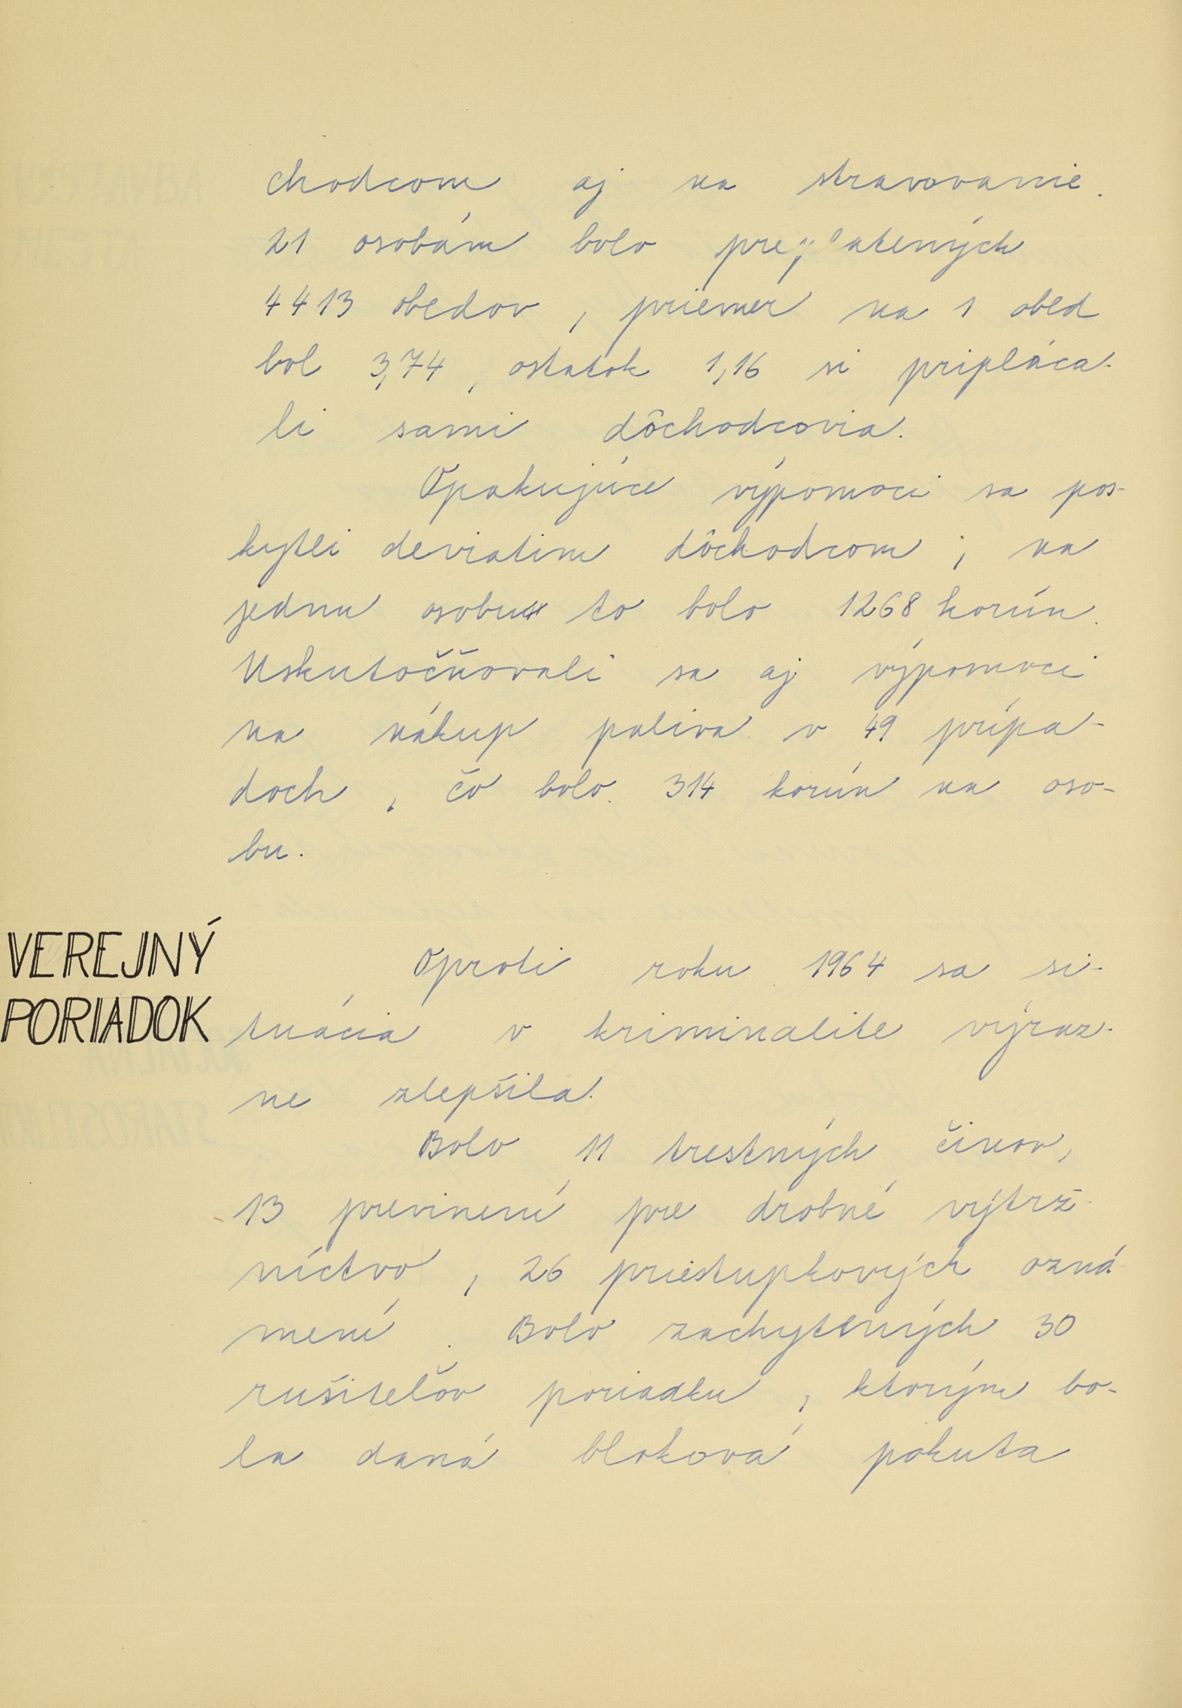 chodcom aj na stravovanie.
21 osobám bolo preplatených
4413 obedov, priemer na 1 obed
bol 3,74, ostatok 1,16 si pripláca-
li sami dôchodcovia.
Opakujúce výpomoci sa pos-
kytli deviatim dôchodcom; na
jednu osobu to bolo 1268 korún.
Uskutočňovali sa aj výpomoci
na nákup paliva v 49 prípa-
doch, čo bolo 314 korún na oso-
bu.
VEREJNÝ
PORIADOK
Oproti roku 1964 sa si-
tuácia v kriminalite výraz-
ne zlepšila.
Bolo 11 trestných činov,
13 previnení pre drobné výtrž-
níctvo, 26 priestupkových ozná
mení. Bolo zachytených 30
rušiteľov poriadku, ktorým bo-
la daná bloková pokuta